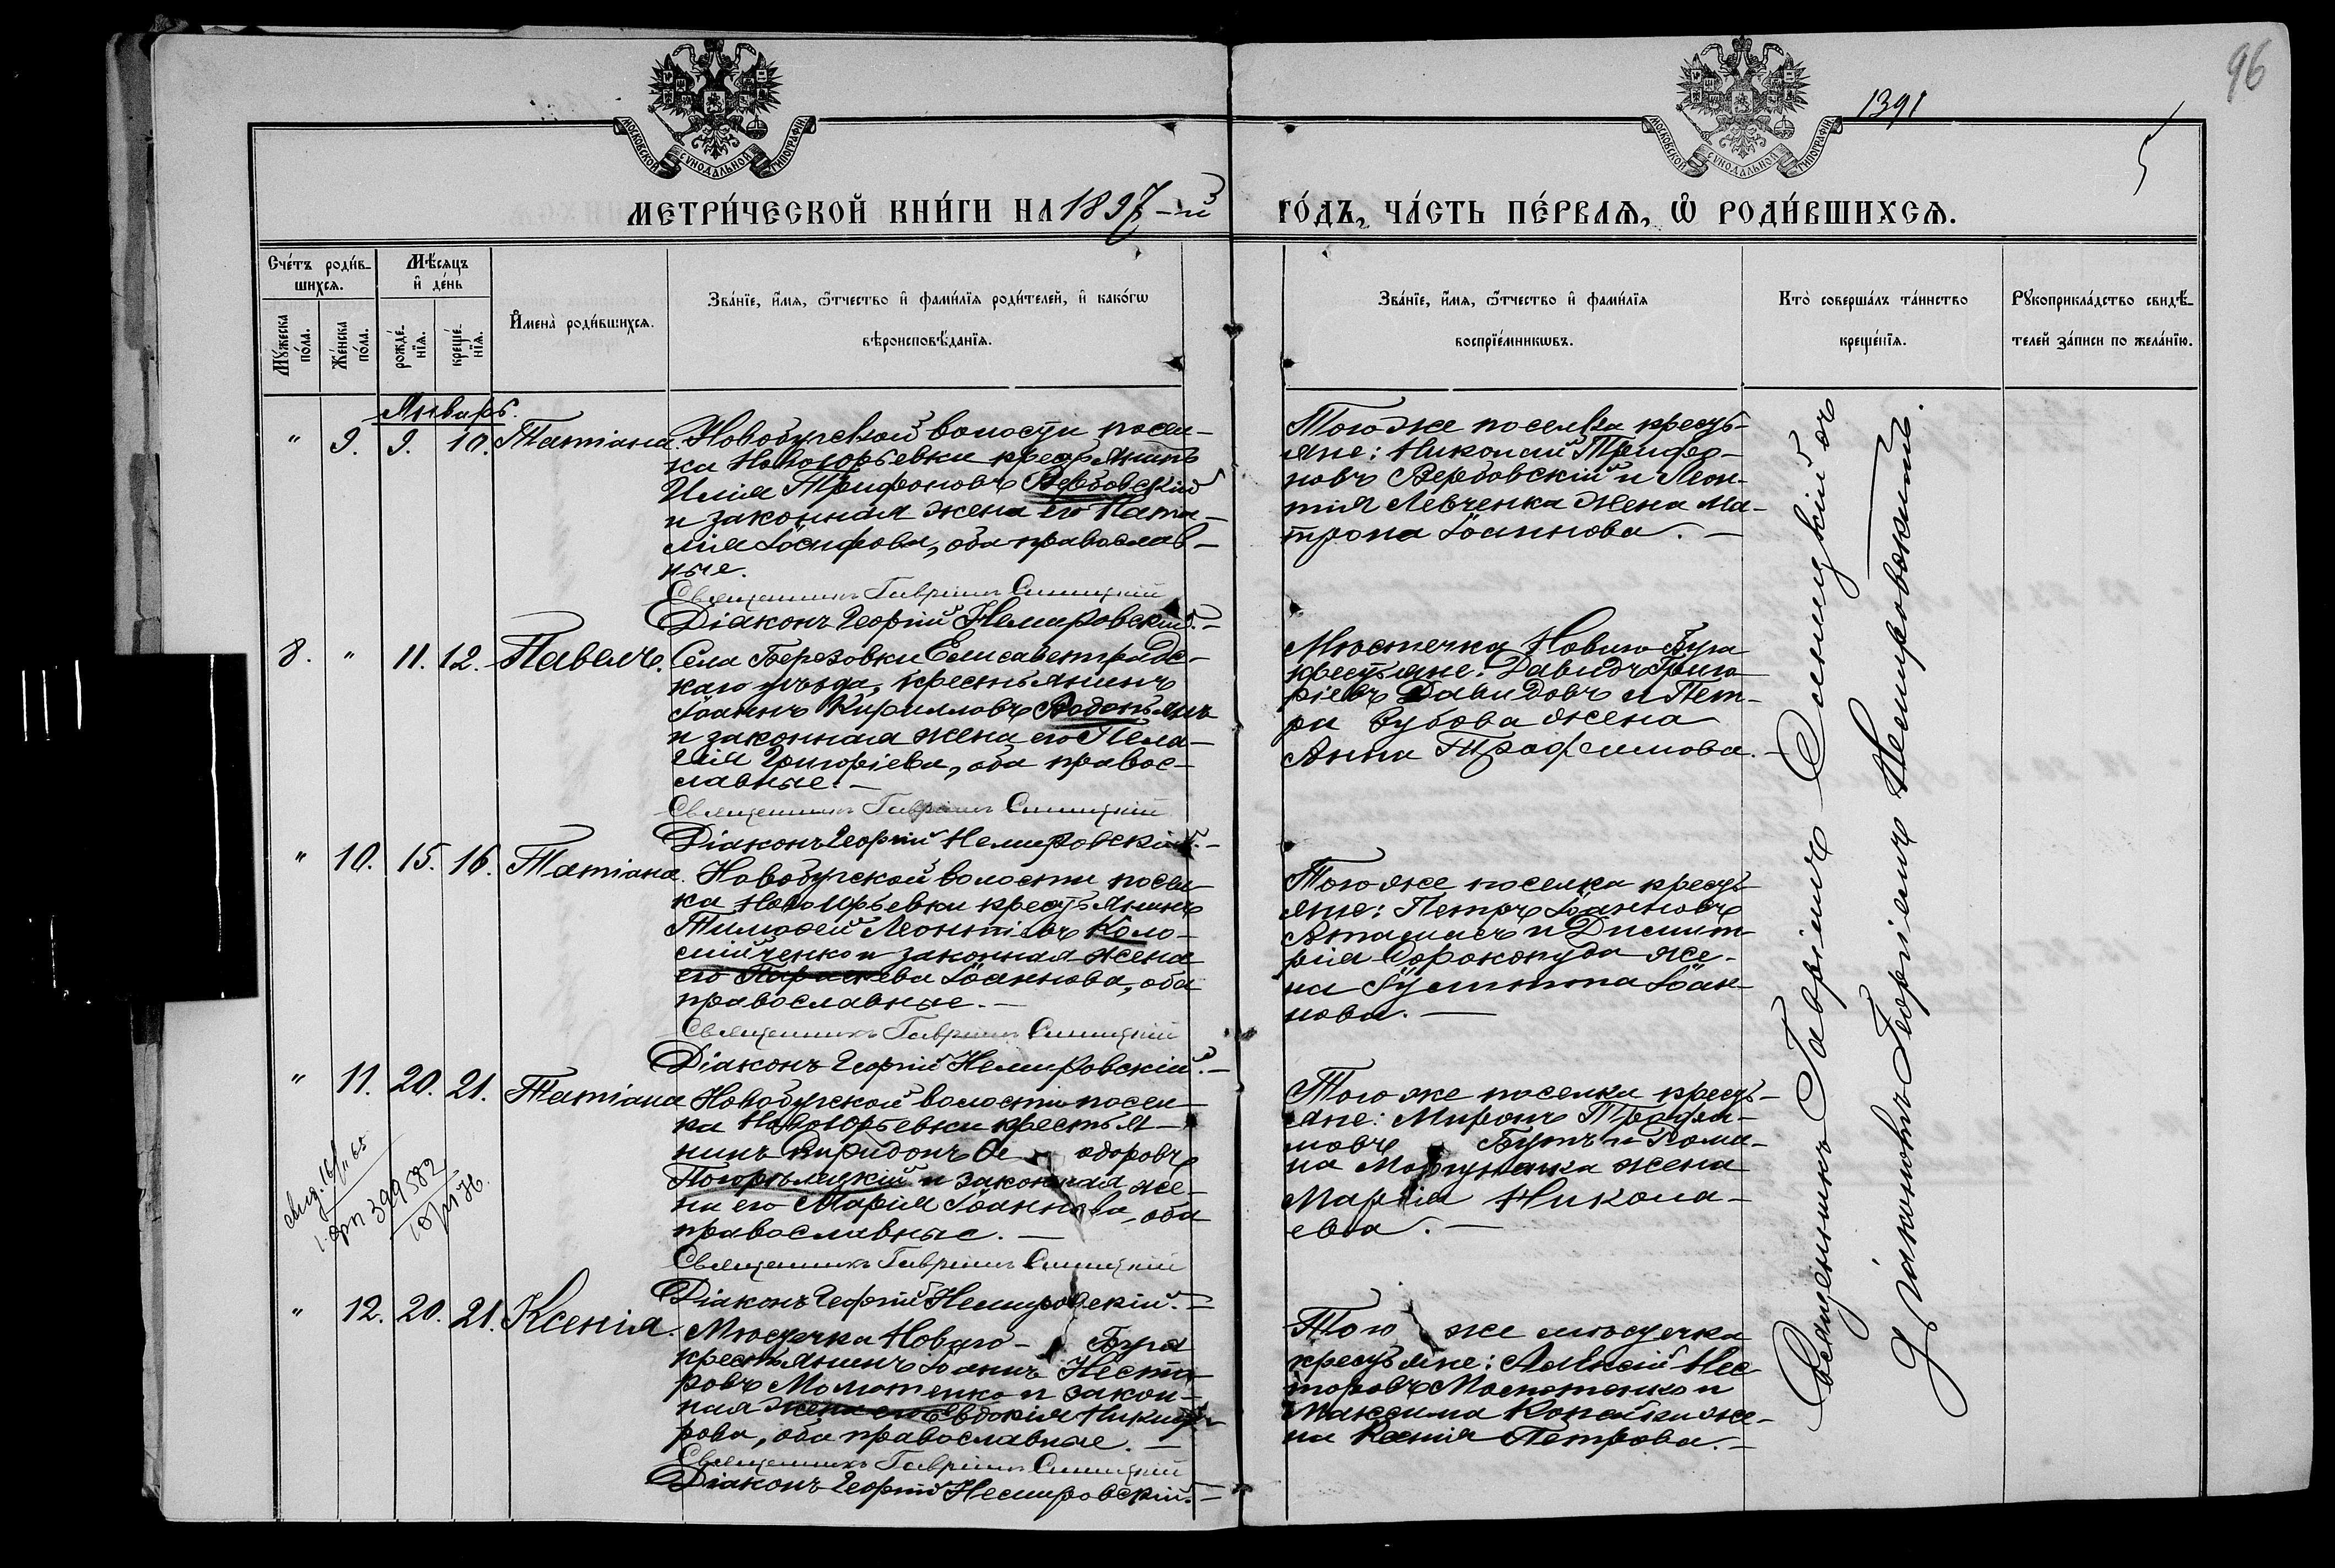 96
1391
5
МОСКОВСКОЙ СѴНОДАЛЬНОЙ ТИПОГРАФІИ
МОСКОВСКОЙ СѴНОДАЛЬНОЙ ТИПОГРАФІИ
МЕТРИ́ЧЕСКОЙ КНИ́ГИ НА 1897-й ГО́ДЪ, ЧА́СТЬ ПЕ́РВАѦ, Ѿ РОДИ́ВШИХСѦ.
Сче́тъ роди́в-
шихсѧ.
Мѣ́сѧцъ
и҆ де́нь
Мꙋ́жеска
по́ла.
Же́нска
по́ла.
рожде́-
нїѧ.
креще́-
нїѧ.
И҆мена̀ роди́вшихсѧ.
Зва́нїе, и҆́мѧ, ѻ҆́тчество и҆ фами́лїѧ роди́телей, и҆ како́гѡ
вѣроисповѣ́данїѧ.
Зва́нїе, и҆́мѧ, ѻ҆́тчество и҆ фами́лїѧ
воспрїе́мникѡвъ.
Кто̀ соверша́лъ та́инство
креще́нїѧ.
Рꙋкоприкла́дство свидѣ́-
телей за́писи по жела́нїю.
Январь.
" 9. 9. 10. Татіана.
Новобугской волости посел-
ка Новоюрьевки крестьянинъ
Илія Трифоновъ Вербовскій
и законная жена его Ната-
лія Іосифова, оба православ-
ные.
Священникъ Гавріилъ Синицкій
Діаконъ Георгій Немировскій.-
Того же поселка кресть-
яне: Николай Трифо-
новъ Вербовскій и Леон-
тія Левченка жена Ма-
трона Іоаннова.-
8. " 11. 12. Павелъ.
Села Березовки Елисаветградс-
каго уѣзда, крестьянинъ
Іоаннъ Кирилловъ Водопьянъ
и законная жена его Пела-
гія Григоріева, оба правос-
лавные.-
Священникъ Гавріилъ Синицкій
Діаконъ Георгій Немировскій.-
Мѣстечка Новаго Буга
крестьяне: Давидъ Григо
ріевъ Давидовъ и Пет-
ра Зубова жена
Анна Трофимова.-
" 10. 15. 16. Татіана.
Новобугской волости посел-
ка Новоюрьевки крестьянинъ
Тимофей Леонтіевъ Коло-
мійченко и законная жена
его Параскева Іоаннова, оба
православные.-
Священникъ Гавріилъ Синицкій
Діаконъ Георгій Немировскій.-
Того же поселка кресть-
яне: Петръ Іоанновъ
Атамасъ и Димит-
рія Сорокопуда же-
на Іустина Іоан-
нова.-
" 11. 20. 21. Татіана
Новобугской волости посел-
ка Новоюрьевки крестья-
нинъ Спиридонъ Ѳе одоровъ
Погорѣлецкій и законная же-
на его Марія Іоаннова, оба
православные.-
Священникъ Гавріилъ Синицкій
Діаконъ Георгій Немировскій.-
399582
Того же поселка кресть-
яне: Миронъ Трофи-
мовъ Бутъ и Рома-
на жена
Марѳа Никола-
ева.-
" 12. 20. 21. Ксенія.
Мѣстечка Новаго- Буга
крестьянинъ Іоаннъ Несто-
ровъ Молотенко и закон-
ная жена его Евдокія Никифо-
рова, оба православные.-
Священникъ Гавріилъ Синицкій
Діаконъ Георгій Немировскій.-
Того же мѣстечка
крестьяне: Алексій Нес
торовъ Молотенко и
Максима же-
на Ксенія Петрова.-
Священникъ Гавріилъ Синицкій съ
Діакономъ Георгіемъ Немировскимъ.